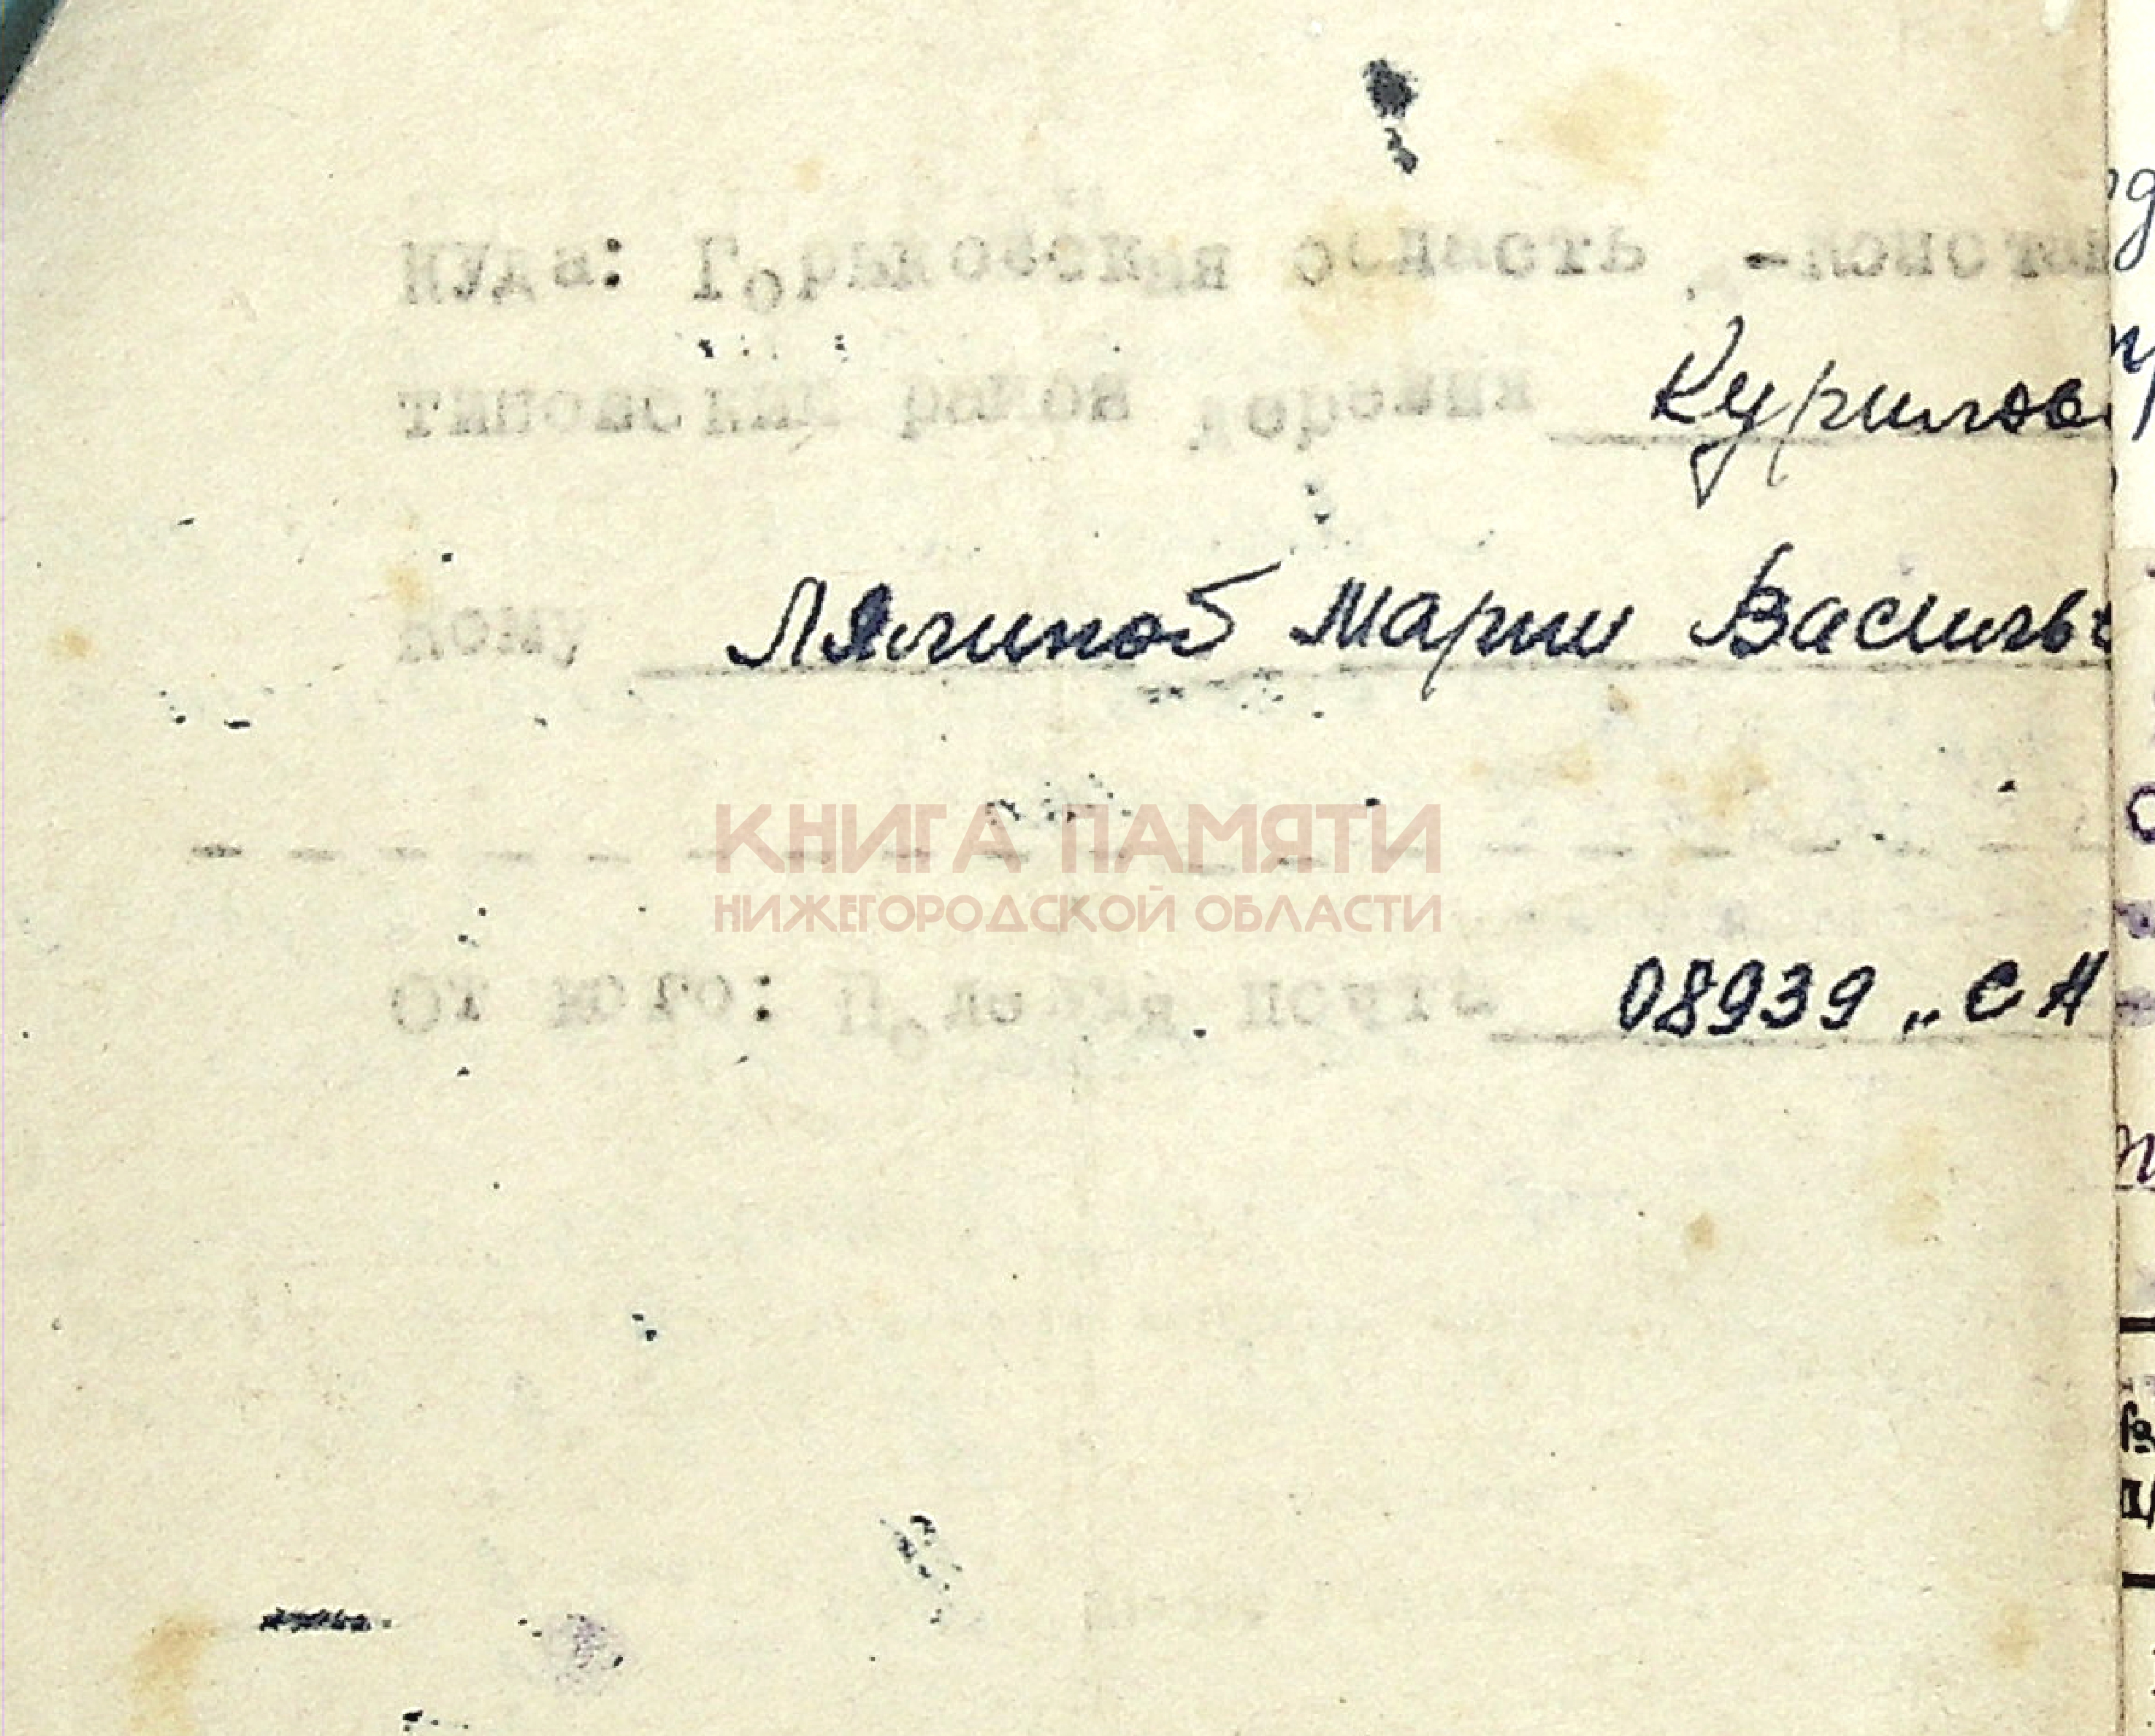 Куда: Горьковская область, -Константи
тиновский район деревня Курилов
Кому Лялиной Марии Василье
КНИГА ПАМЯТИ
НИЖЕГОРОДСКОЙ ОБЛАСТИ
От кого: Полевая почта 08939 „СА